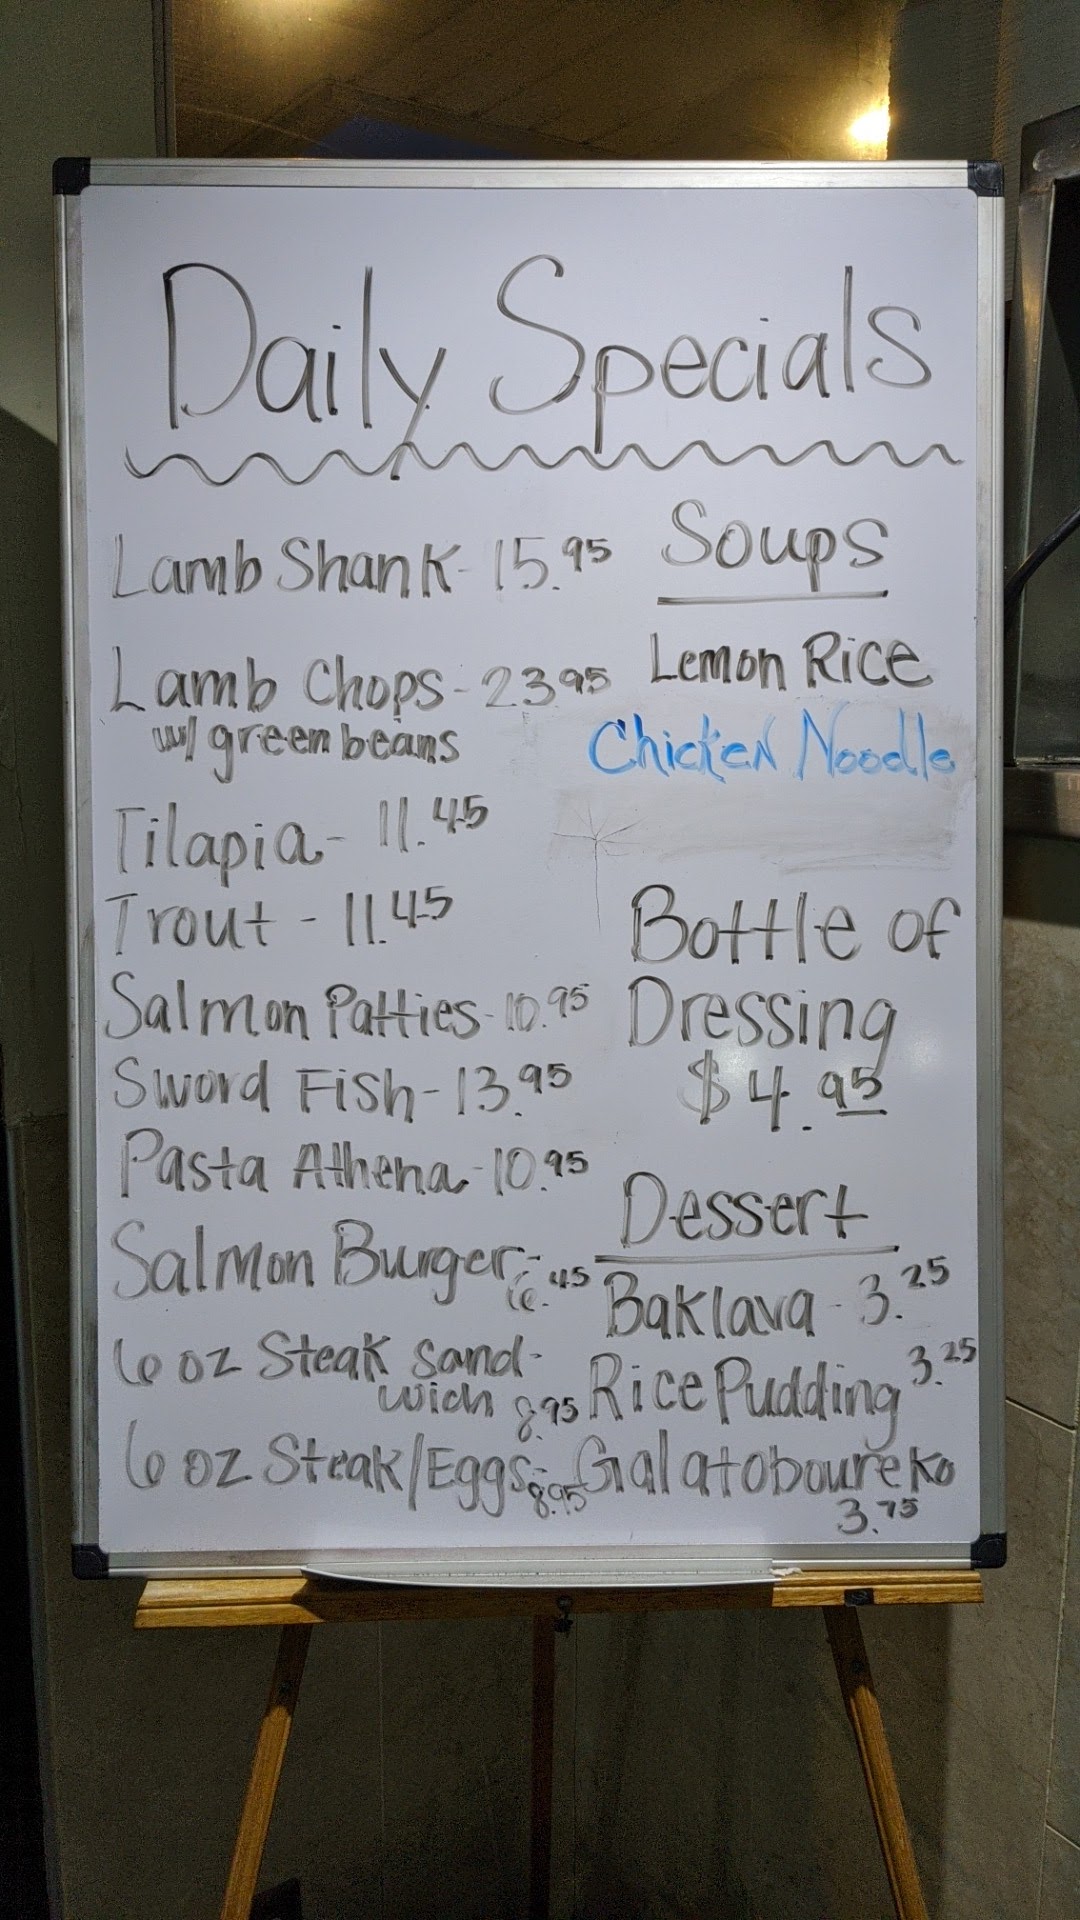 Daily Specials
Lamb Shank - 15.95
Lamb Chops - 23.95
w/ green beans
Tilapia - 11.45
Trout - 11.45
Salmon Patties - 10.95
Sword Fish - 13.95
Pasta Athena - 10.95
Salmon Burger -
6.45
6 oz Steak Sand-
wich 8.95
6 oz Steak/Eggs -
8.95
Soups
Lemon Rice
Chicken Noodle
Bottle of
Dressing
$4.95
Dessert
Baklava - 3.25
Rice Pudding 3.25
Galatoboureko
3.75